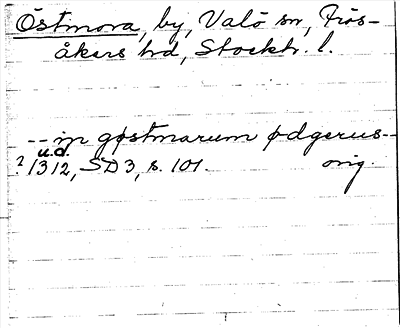 Östmora, by, Valö sn, Frös-
åkers hd, Stockh. l.
-- in gøstmarum ødgerus--
u.d.
? 1312, SD 3, s. 101. orig.